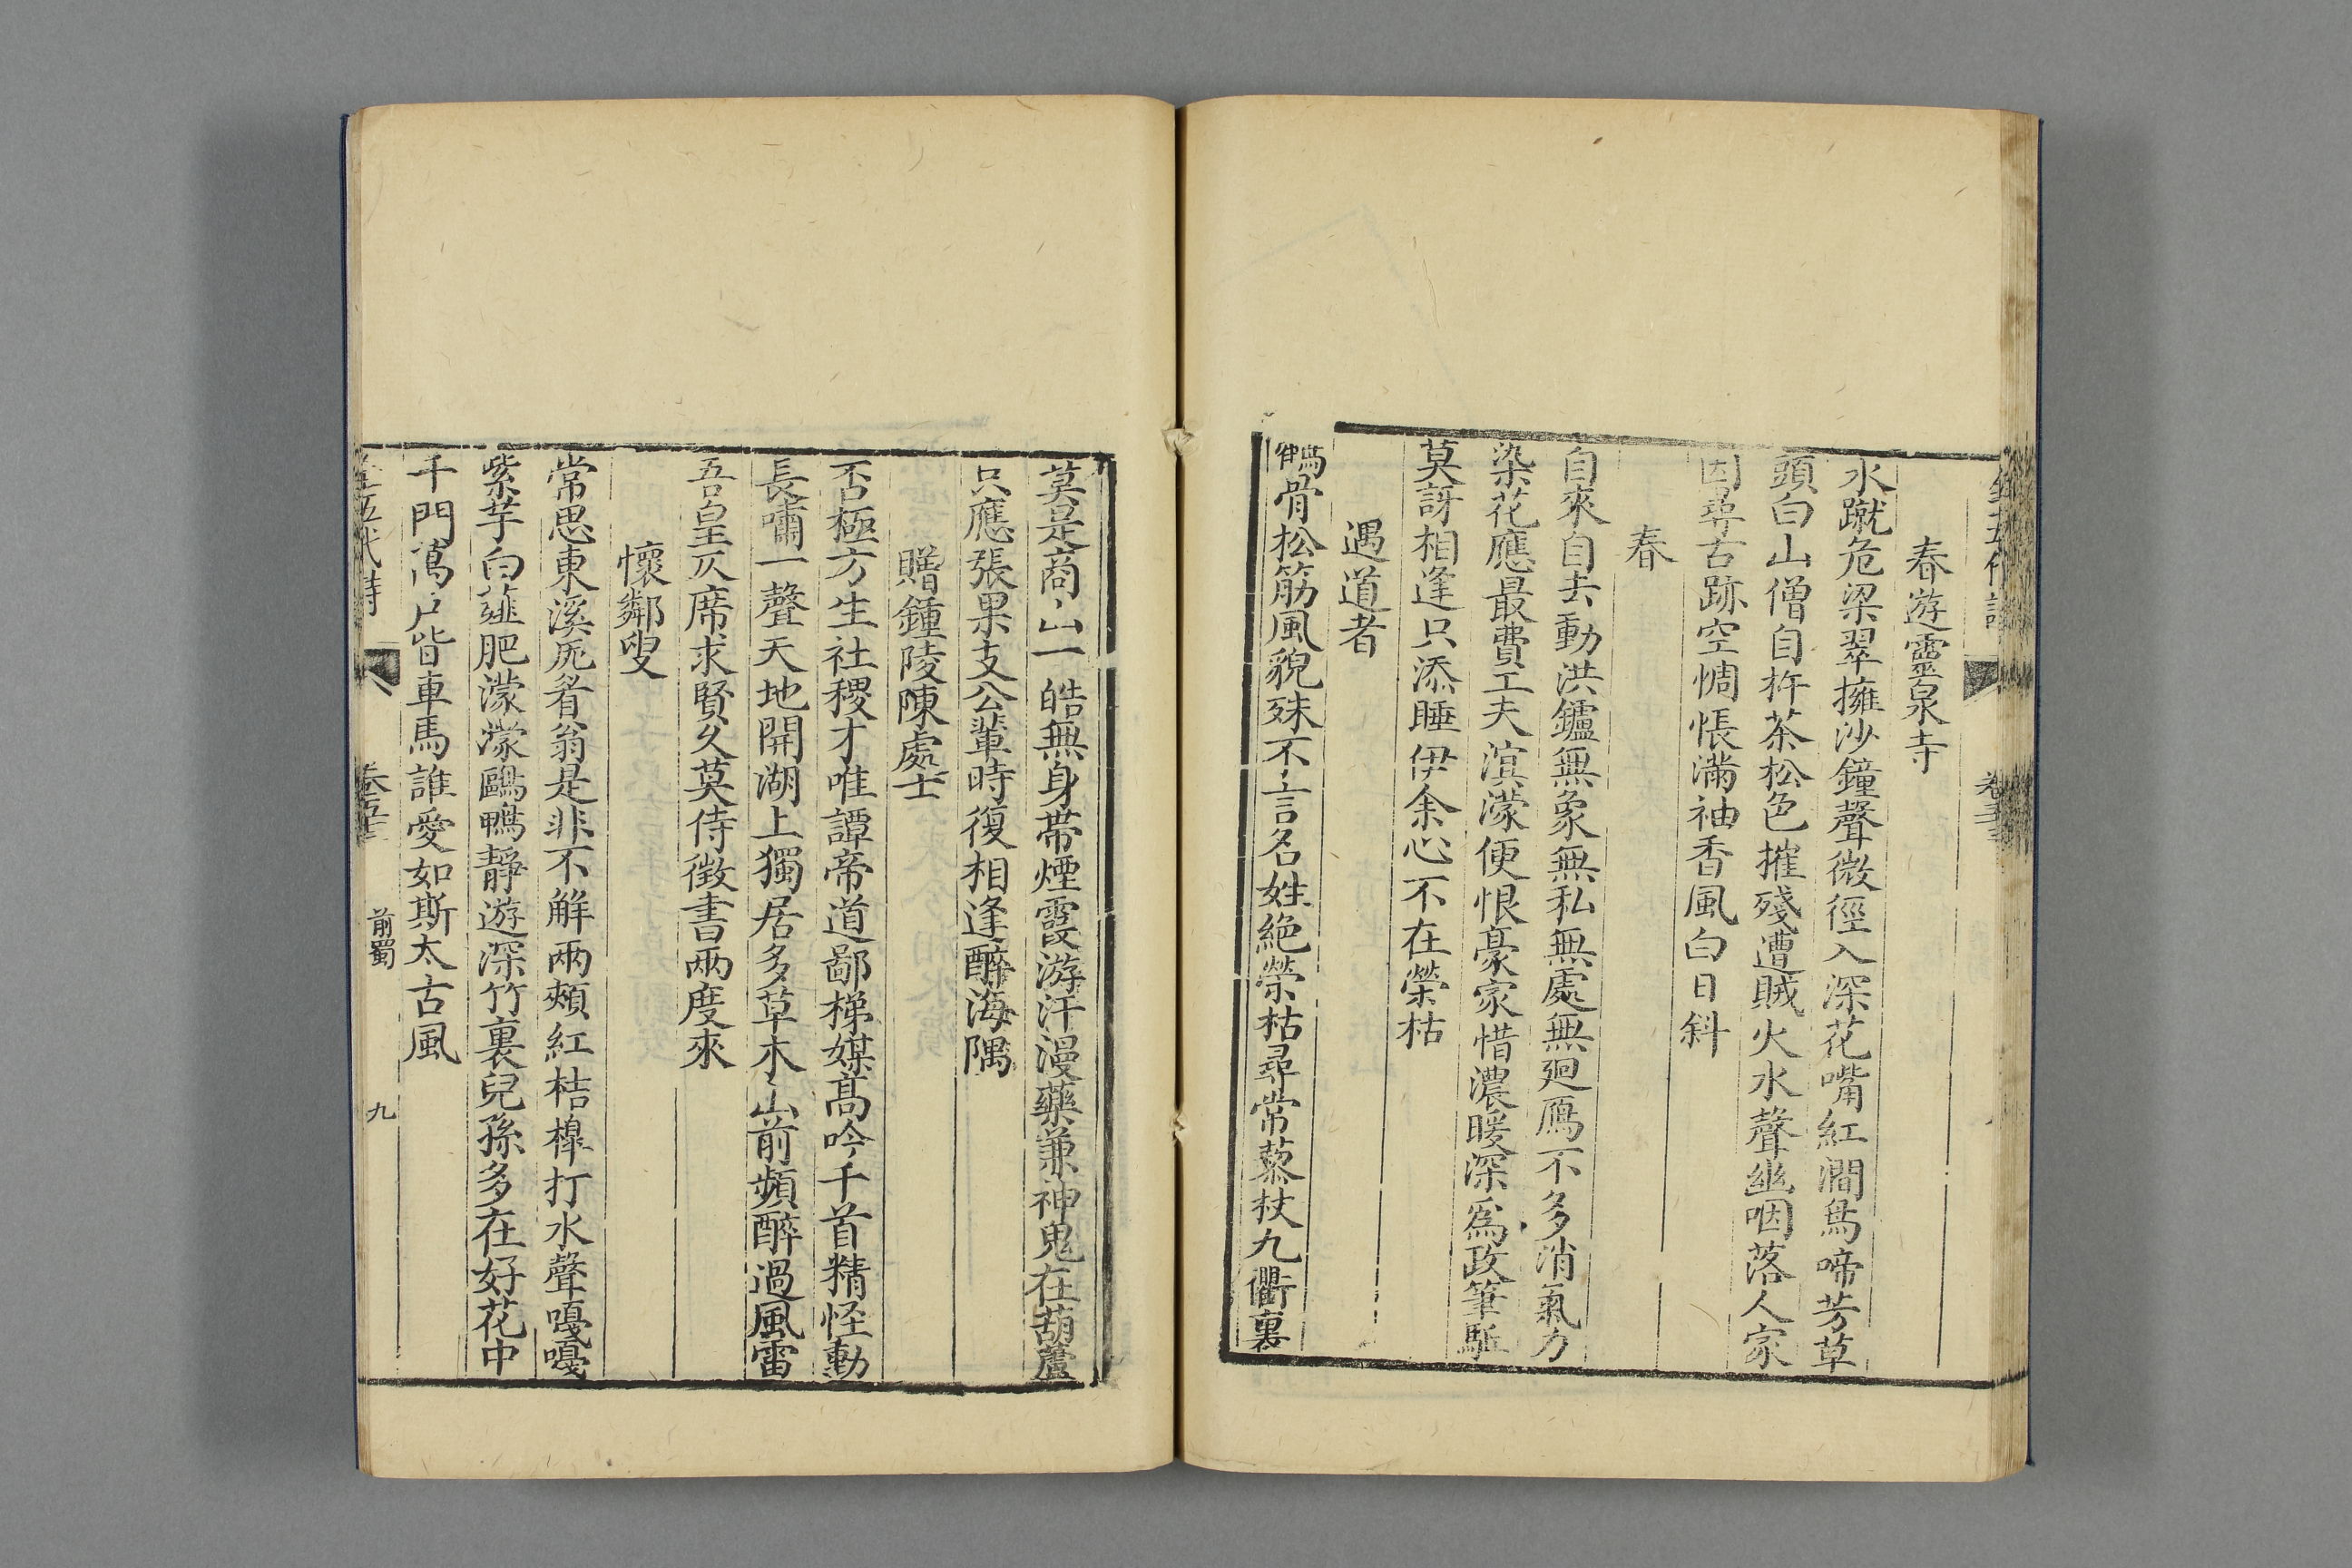 春游靈泉寺
水蹴危梁翠擁沙鐘聲微徑入深花嘴紅澗鳥啼芳草
頭白山僧自杵茶松色摧殘遭賊火水聲幽咽落人家
因尋古跡空惆悵滿袖香風白日斜
春
自來自去動洪鑪無象無私無處無廻鴈不多消氣力
染花應最費工夫溟濛便恨豪家惜濃暖深爲政筆驅
莫訝相逢只添睡伊余心不在榮枯
遇道者
骨松筋風貌殊不言名姓絕榮枯尋常藜杖九衢裏
莫是商山一皓無身帶煙霞游汗漫藥兼神鬼在葫蘆
只應張果支公輩時復相逢醉海隅
贈鍾陵陳處士
否極方生社稷才唯譚帝道鄙梯媒高吟千首精怪動
長嘯一聲天地開湖上獨居多草木山前頻醉過風雷
吾皇仄席求賢久莫待徵書兩度來
懷鄰叟
常思東溪厖眉翁是非不解兩頰紅桔槔打水聲嘎嘎
紫芋白薤肥濛濛鷗鴨靜遊深竹裏兒孫多在好花中
千門萬戶皆車馬誰愛如斯太古風
五代詩 卷五 前蜀 九